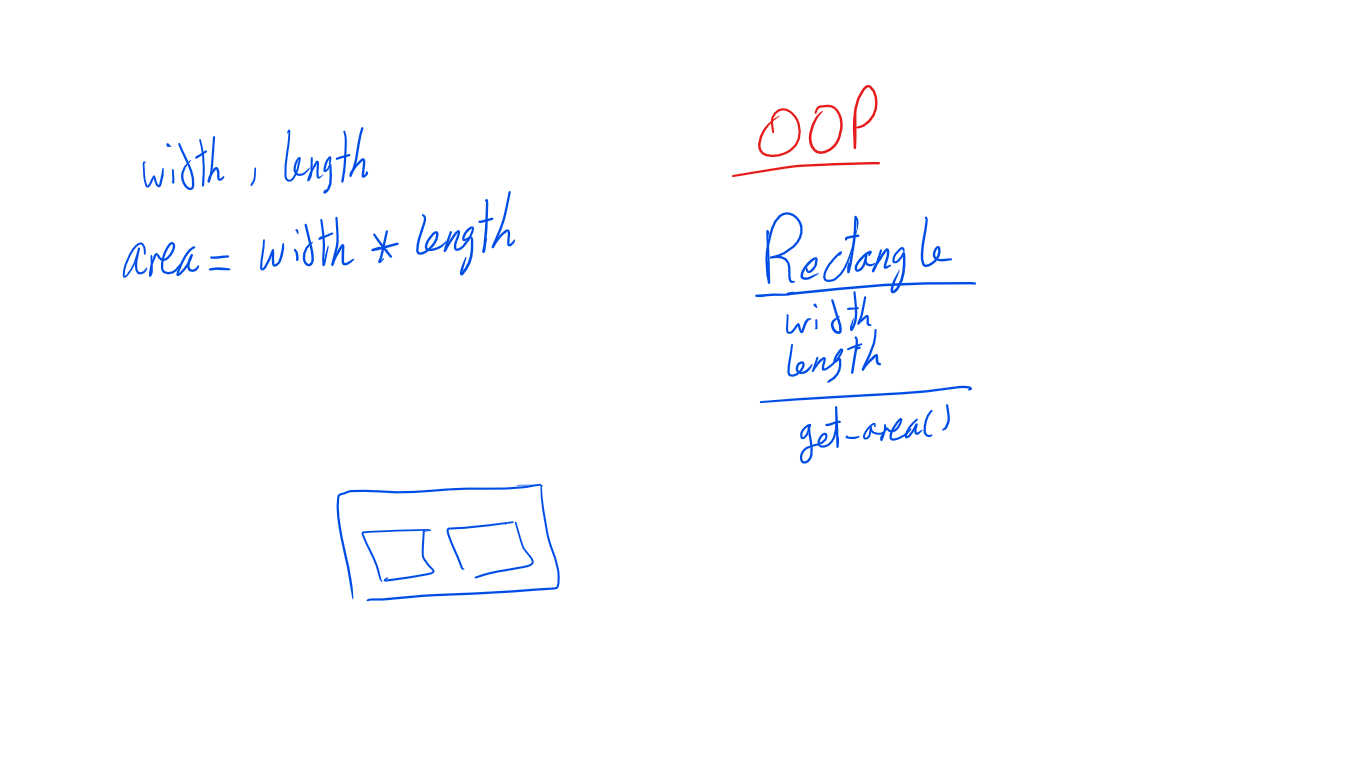 width , length
area = width * length
OOP
Rectangle
width
length
get_area()